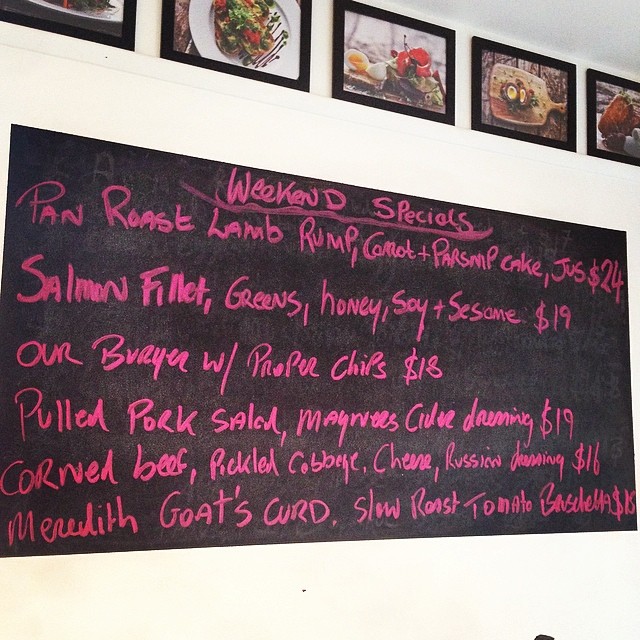 Weekend Specials
Pan Roast Lamb Rump, Carrot + Parsnip cake, Jus $24
Salmon Fillet, Greens, honey, Soy + Sesame $19
Our Burger w/ Proper chips $18
Pulled Pork Salad, Magners Cider dressing $19
Corned beef, Pickled Cabbage, Cheese, Russian dressing $16
Meredith Goat's Curd, Slow Roast Tomato Bruschetta